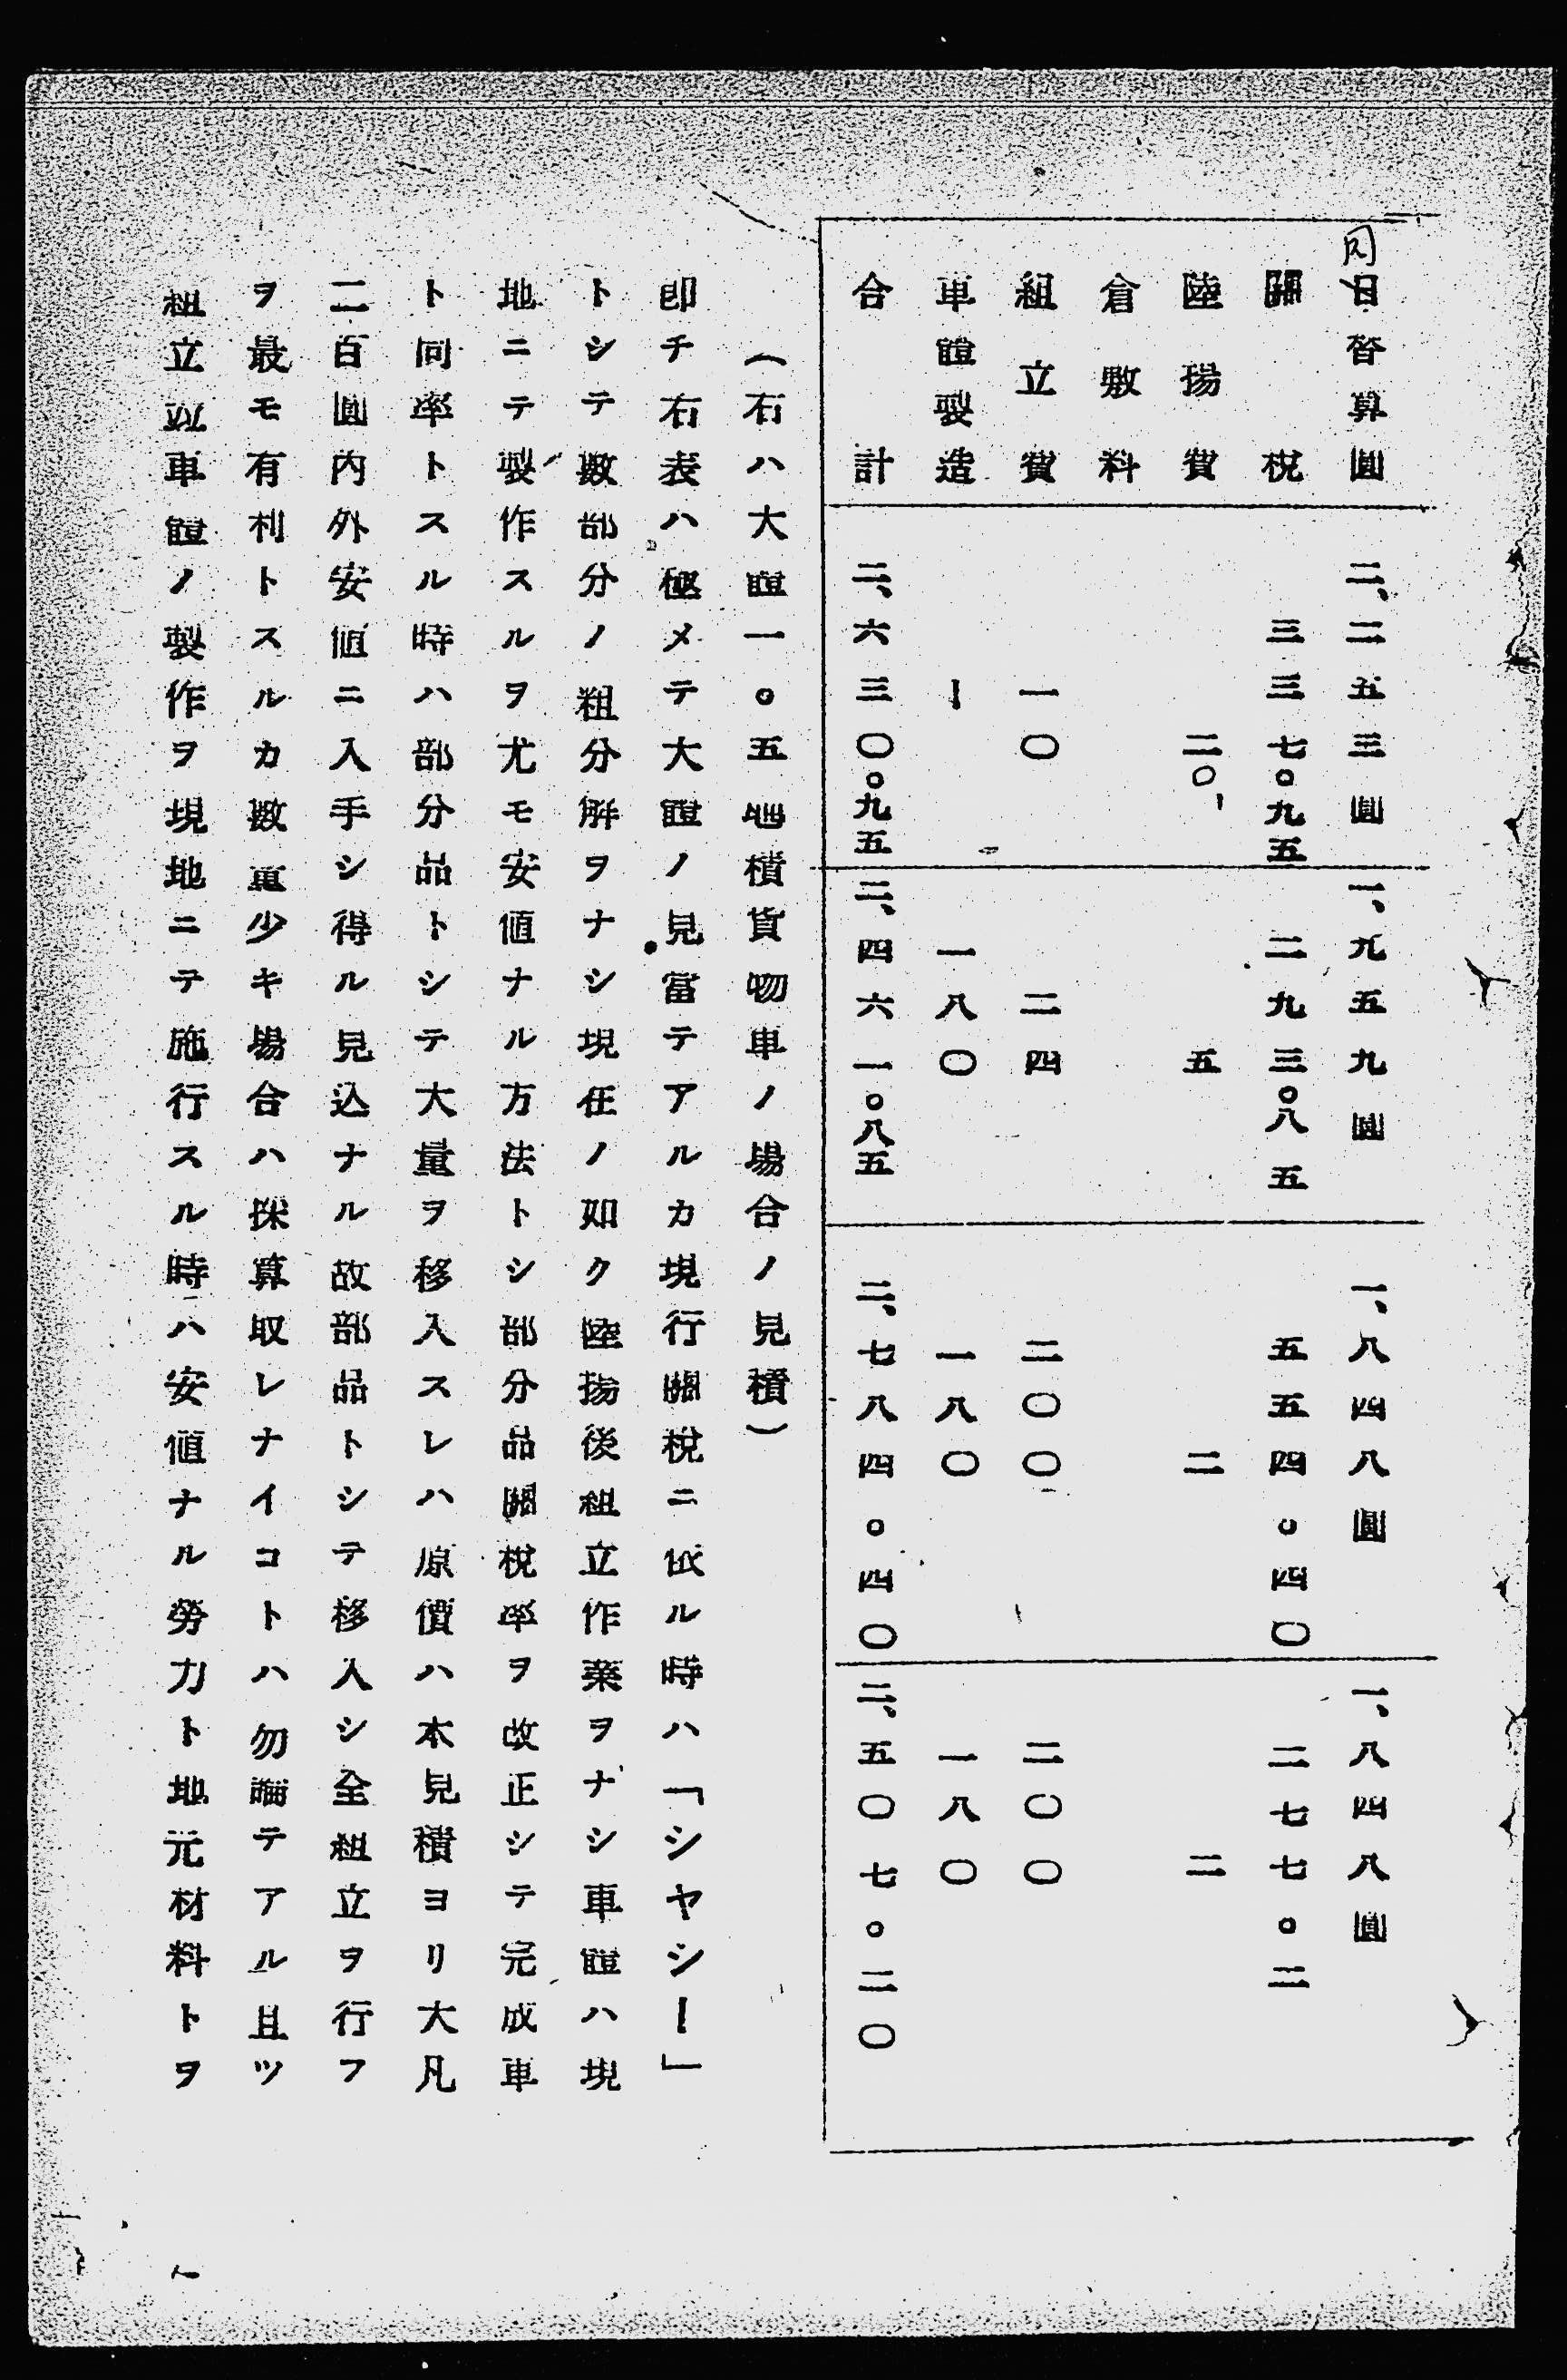 同日替算圓 二、二五三圓 一、九五九圓 一、八四八圓 一、八四八圓
關稅 三三七。九五 二九三。八五 五五四。四〇 二七七。二
陸揚費 二〇 五 二 二
倉敷料
組立費 一〇 二四 二〇〇 二〇〇
車體製造 ー 一八〇 一八〇 一八〇
合計 二、六三〇。九五 二、四六一。八五 二、七八四。四〇 二、五〇七。二〇
(右ハ大體一。五噸積貨物車ノ場合ノ見積)
卽チ右表ハ極メテ大體ノ見當テアルカ現行關稅ニ依ル時ハ「シヤシー」
トシテ數部分ノ粗分解ヲナシ現在ノ如ク陸揚後組立作業ヲナシ車體ハ現
地ニテ製作スルヲ尤モ安値ナル方法トシ部分品關稅率ヲ改正シテ完成車
ト同率トスル時ハ部分品トシテ大量ヲ移入スレハ原價ハ本見積ヨリ大凡
二百圓內外安値ニ入手シ得ル見込ナル故部品トシテ移入シ全組立ヲ行フ
ヲ最モ有利トスルカ數量少キ場合ハ採算取レナイコトハ勿論テアル且ツ
組立竝車體ノ製作ヲ現地ニテ施行スル時ハ安値ナル勞力ト地元材料トヲ